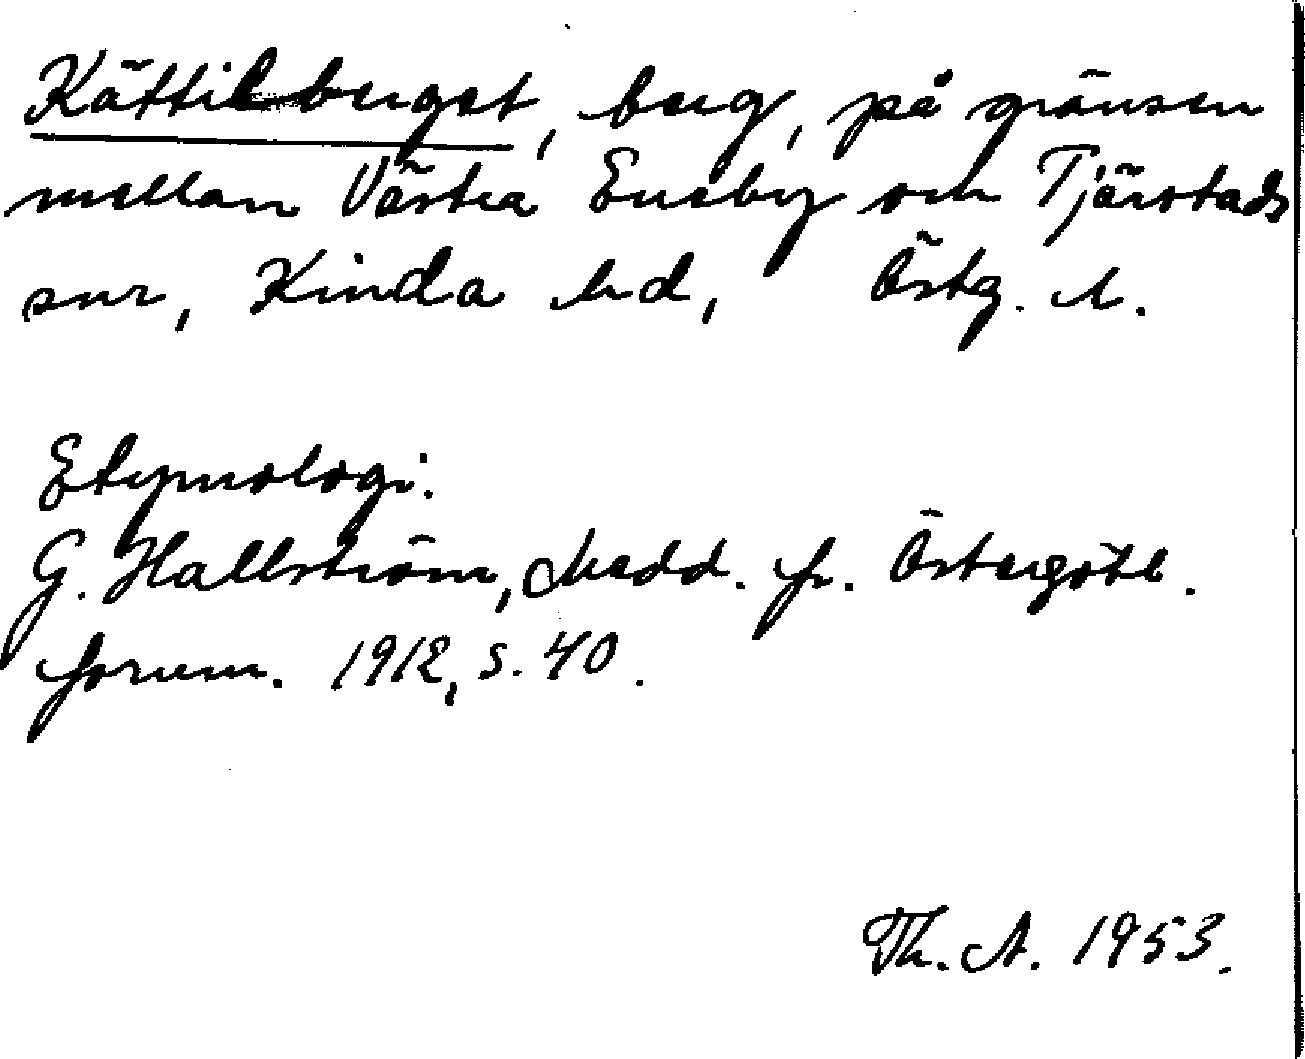 Kättilberget, berg, på gränsen
mellan Västra Eneby och Tjärstads
snr, Kinda hd, Östg. l.
Etymologi.
G. Hallström, Medd. fr. Östergötl.
fornm. 1912, s. 40.
Th. A. 1953.